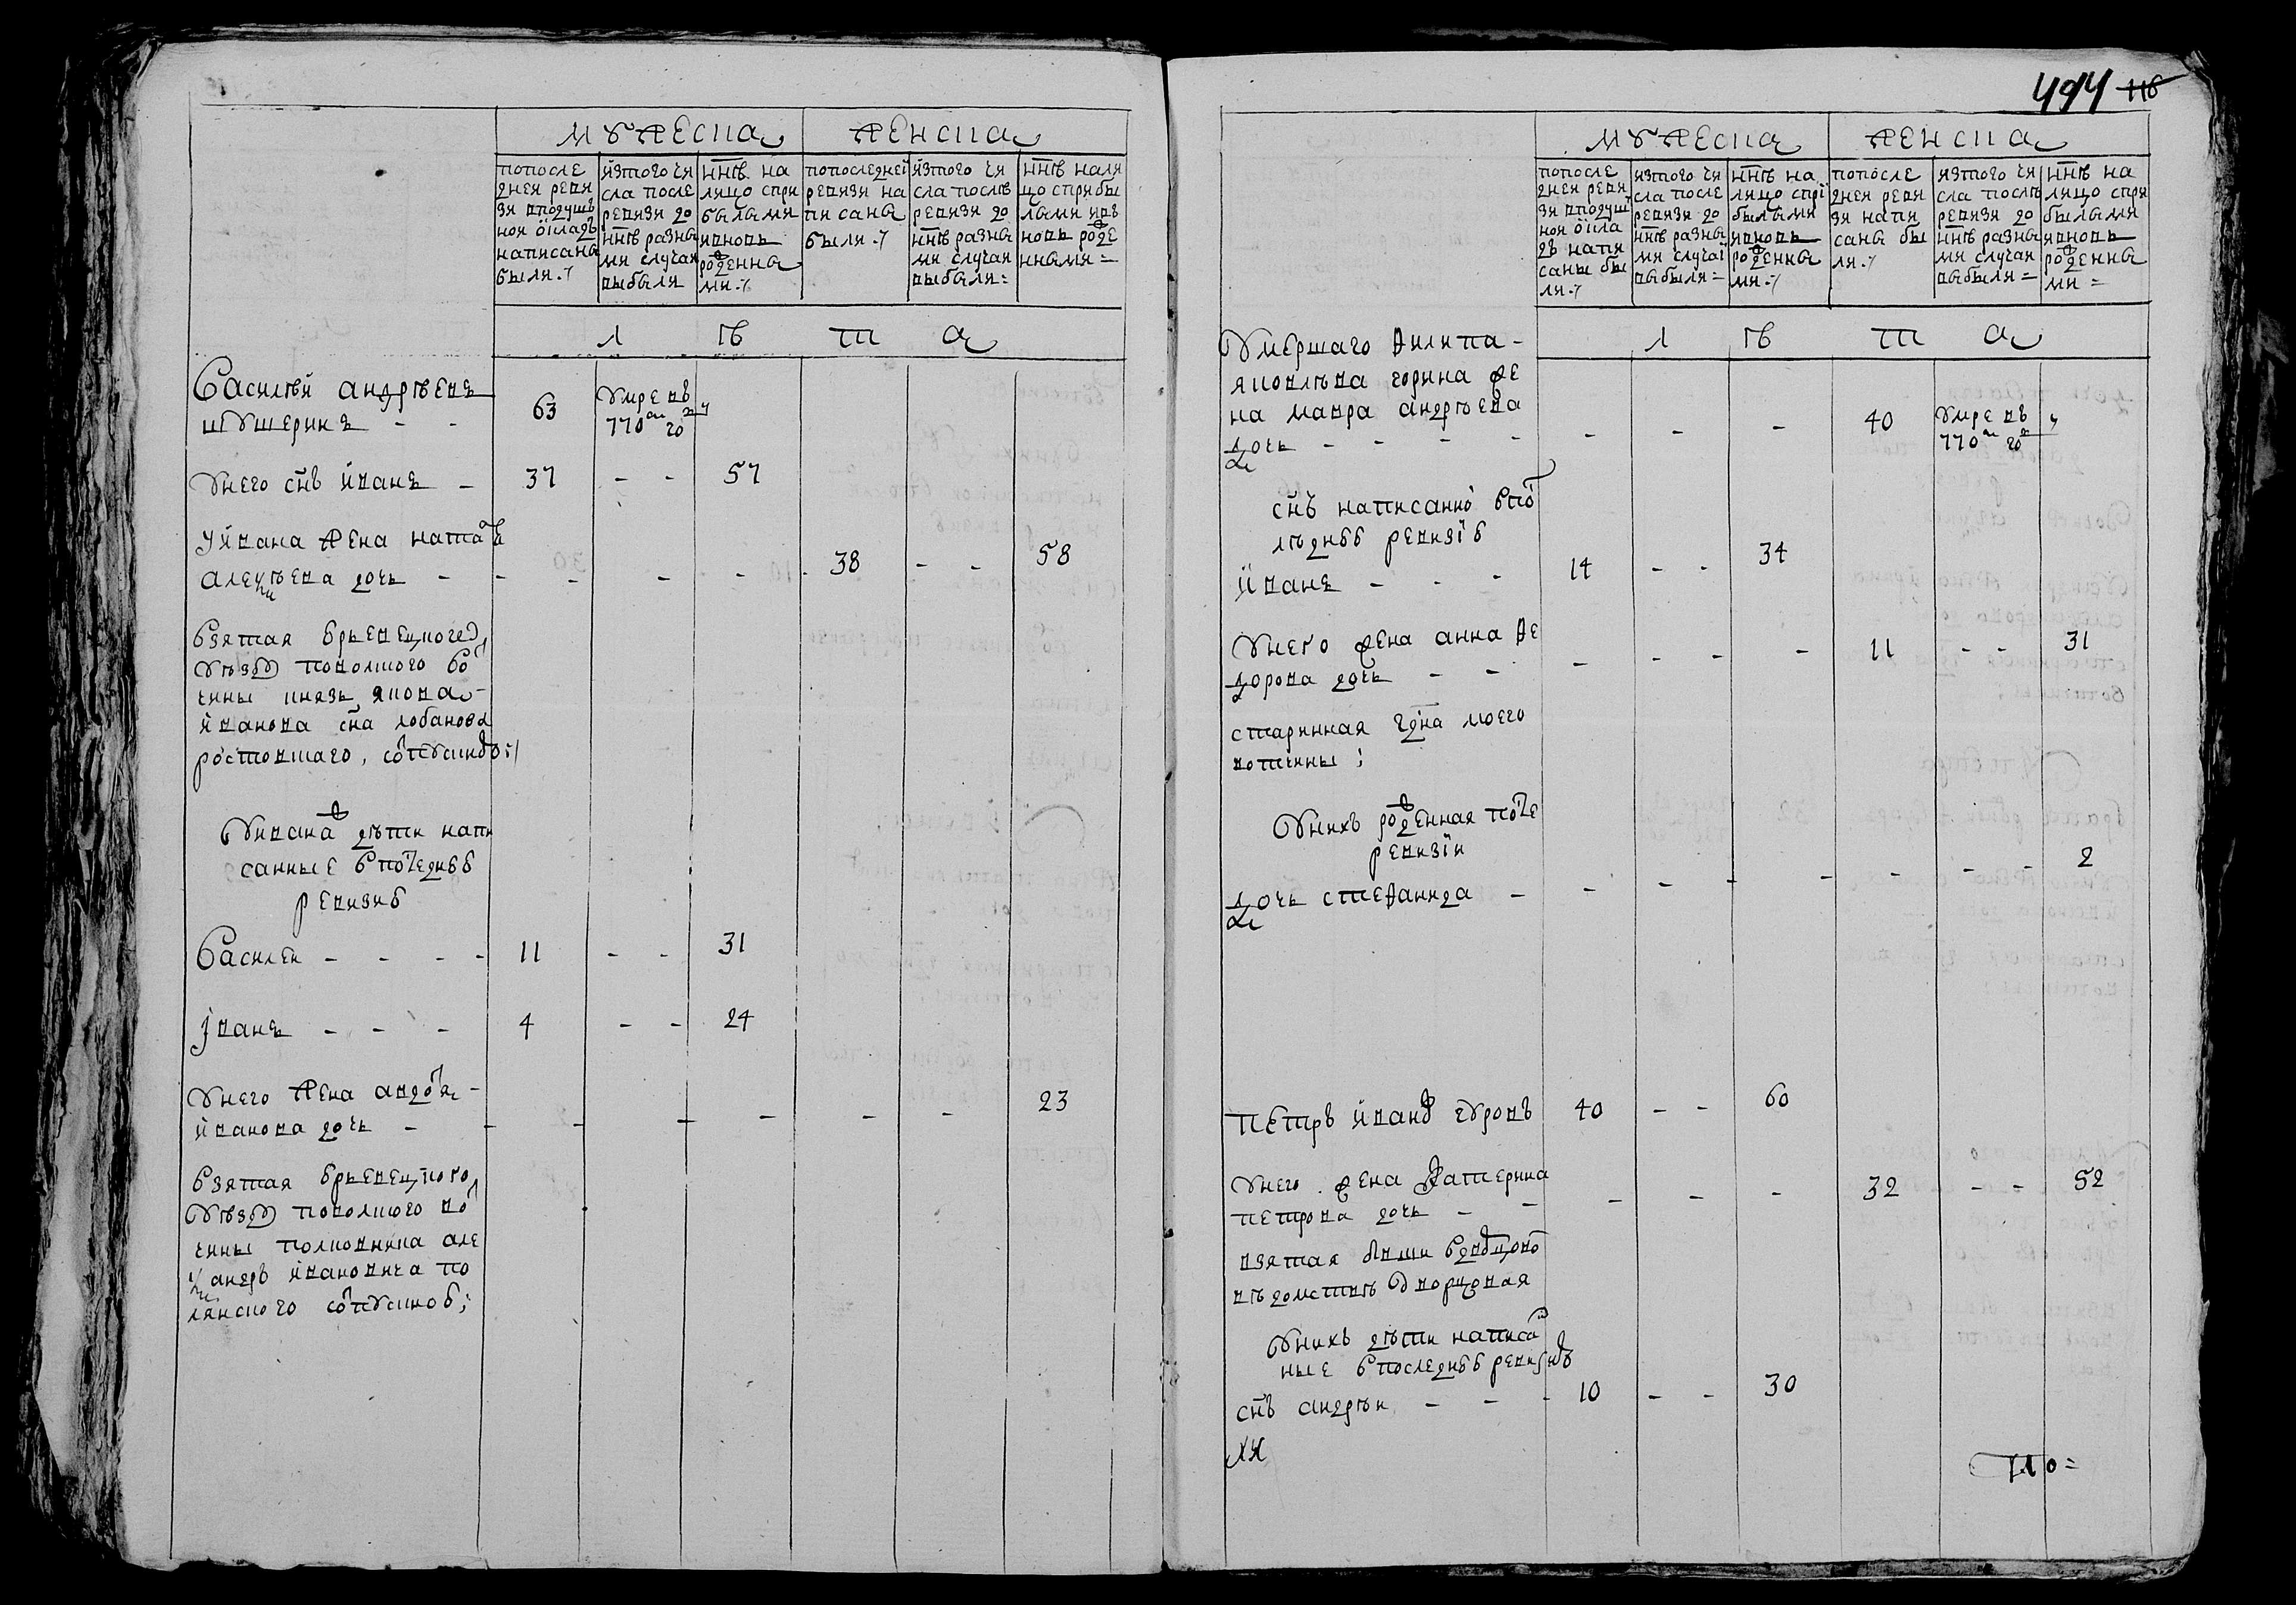 494 116
мужеска
женска
попосле
дней реви
зи вподуш
ной окладъ
написаны
были
изтого чи
сла после
ревизи до
ннѣ разны
ми случаи
выбыли
ннѣ на
лицо спри
былыми
ивновь
рожденны
ми
попоследней
ревизи на
писаны
были
изтого чи
сла послѣ
ревизи до
ннѣ разны
ми случаи
выбыли
ннѣ нали
цо сприбы
лыми ивъ
новь рожде
нными
лѣта
Василѣй андрѣевъ
шушеринъ - - 63 умре въ 770м году
Унего снъ иванъ - 37 - - 57
Уивана жена наталья
алексѣева дочь - - - - - 38 - - 58
Взятая
уѣзду
чины князь якова
иванова сна лобанова
ростовшаго, сотпускною
Уивана дѣти напи
санные впоследней
ревизии
Василей - - - - 11 - - 31
Иванъ - - - 4 - - 24
Унего жена авдотья
иванова дочь - - - - - - - 23
Взятая
уѣзду
чины полковника але
ксандръ ивановича по
лянского сотпускной;
мужеска
женска
попосле
дней реви
зи вподуш
ной окла
дъ напи
саны бы
ли
изтого чи
сла после
ревизи до
ннѣ разны
ми случаи
выбыли
ннѣ на
лицо спри
былыми
ивновь
рожденны
ми
попосле
дней реви
зи напи
саны бы
ли
изтого чи
сла послѣ
ревизи до
ннѣ разны
ми случаи
выбыли
ннѣ на
лицо спри
былыми
ивновь
рожденны
ми
лѣта
Умершаго филипа
яковлева горина же
на мавра андрѣева
дочь - - - - - - - 40 умре въ 770м году
снъ написанной впо
слѣдней ревизiи
Иванъ - - - 14 - - 34
Унего жена анна фе
дорова дочь - - - - - - 11 - - 31
старинная
вотчины;
Унихъ рожденная после
ревизiи
дочь стефанида - - - - - - - - 2
петръ иванов гуровъ 40 - - 60
Унего жена катерина
петрова дочь - - - - - 32 - - 52
взятая
вѣдомствѣ дворцовая
Унихъ дѣти написан
ные впоследней ревизии
снъ андрѣй - - - 10 - - 30